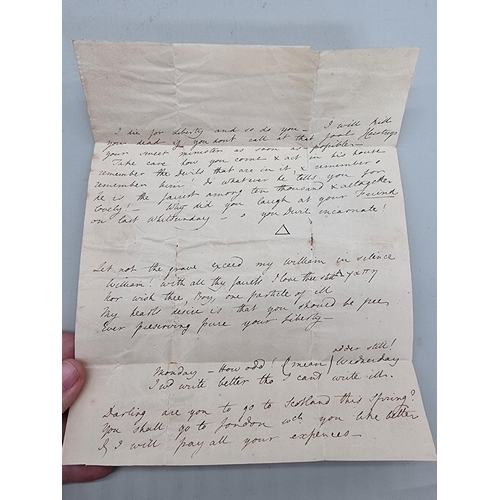 I die for Liberty and so do you — I will kill
you dead if you dont call at that
your sweet minister as soon as possible —
Take care how you come & act in his house
remember the Devils that are in it & remember o
remember him! do whatever he tells you for
he is the fairest among ten thousand & altogether
lovely! Why did you laugh at your Friend
on last Whitsunday — o you Devil incarnate!
△
Let not the grave exceed my William in silence
William! with all thy faults I love thee still
Nor wish thee, Boy, one particle of ill
My hearts desire is that you should be free
Ever preserving pure your Liberty —
odder still!
Monday — How odd! (mean) Wednesday
I wd write better tho I cant write ill.
Darling are you to go to Scotland this Spring?
You shall go to London wch you like better
& I will pay all your expences —